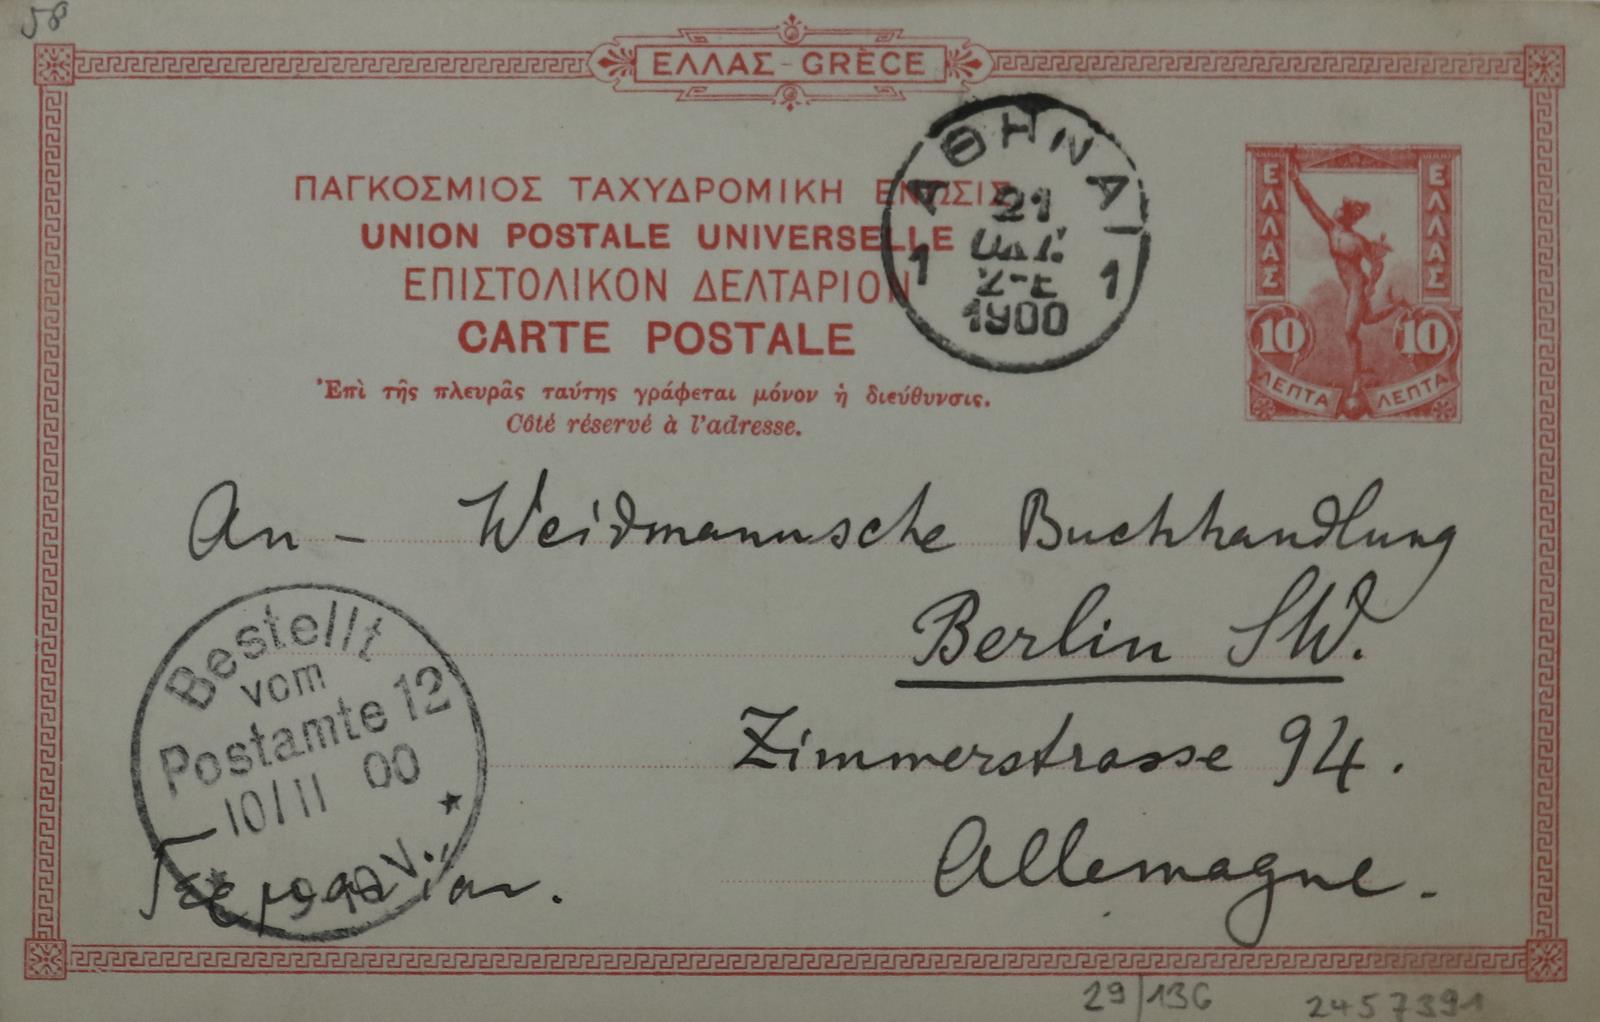 58
ΕΛΛΑΣ - GRÈCE
ΠΑΓΚΟΣΜΙΟΣ ΤΑΧΥΔΡΟΜΙΚΗ ΕΝΩΣΙΣ
UNION POSTALE UNIVERSELLE
ΕΠΙΣΤΟΛΙΚΟΝ ΔΕΛΤΑΡΙΟΝ
CARTE POSTALE
Ἐπὶ τῆς πλευρᾶς ταύτης γράφεται μόνον ἡ διεύθυνσις.
Côté réservé à l'adresse.
ΑΘΗΝΑΙ
21
1 1
1900
ΕΛΛΑΣ ΕΛΛΑΣ
10 10
ΛΕΠΤΑ ΛΕΠΤΑ
An - Weidmannsche Buchhandlung
Berlin SW.
Zimmerstrasse 94.
Allemagne.
Bestellt
vom
Postamte 12
10/11 00
V.
Γερμανίαν.
29/136
2457391